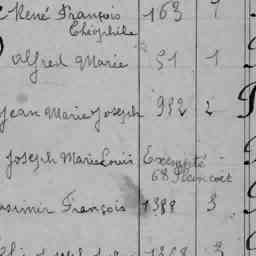 René François 163 1
Théophile
Alfred Marie 51 1
Jean Marie Joseph 982 2
Joseph Marie Louis Exempté
68 Plancoët
Casimir François 1388 3